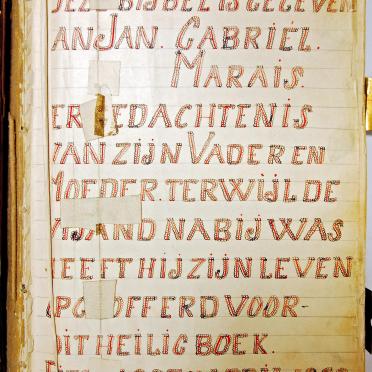 DEZE BIJBEL IS GEGEVEN
AAN JAN. GABRIËL.
MARAIS.
TER GEDACHTENIS
VAN ZIJN VADER EN
MOEDER. TERWIJL DE
VIJAND NABIJ WAS
HEEFT HIJ ZIJN LEVEN
OPGEOFFERD VOOR-
DIT HEILIG BOEK.